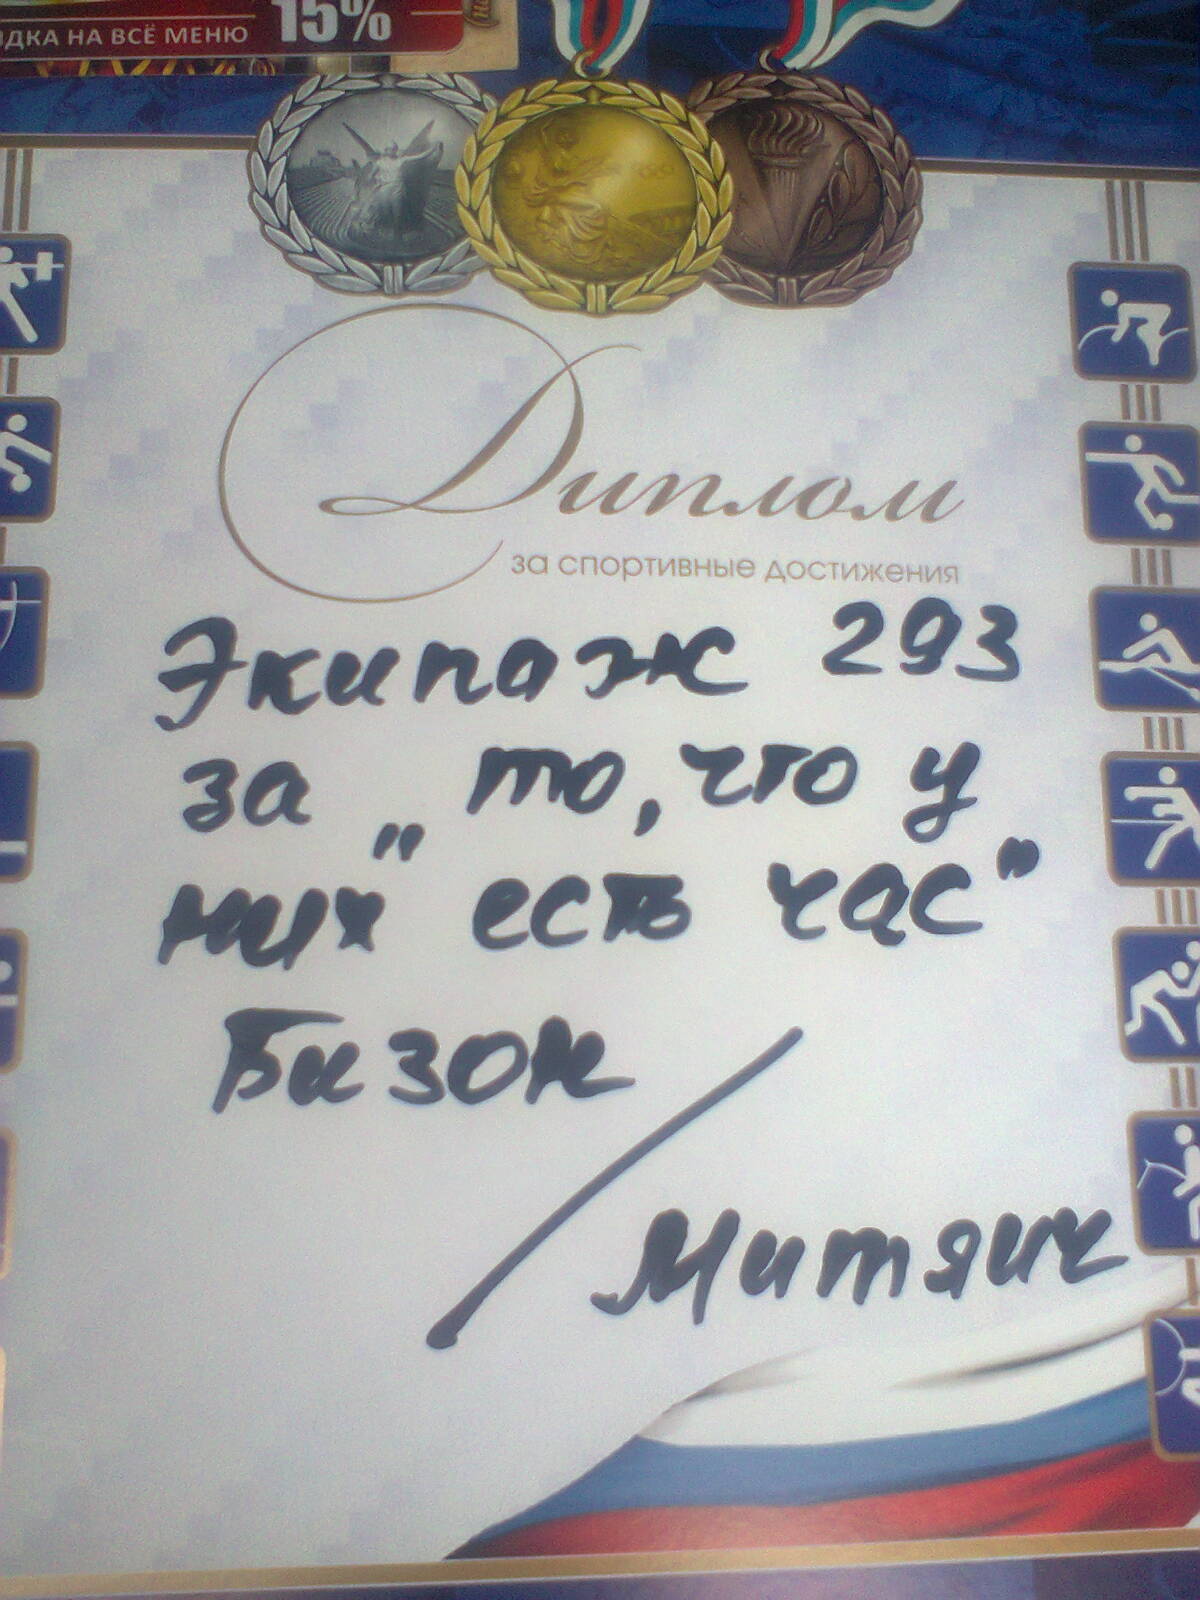 ОДКА НА ВСЁ МЕНЮ 15%
Диплом
за спортивные достижения
Экипаж 293
за то, что у
них „есть час”
Бизон
Митяич